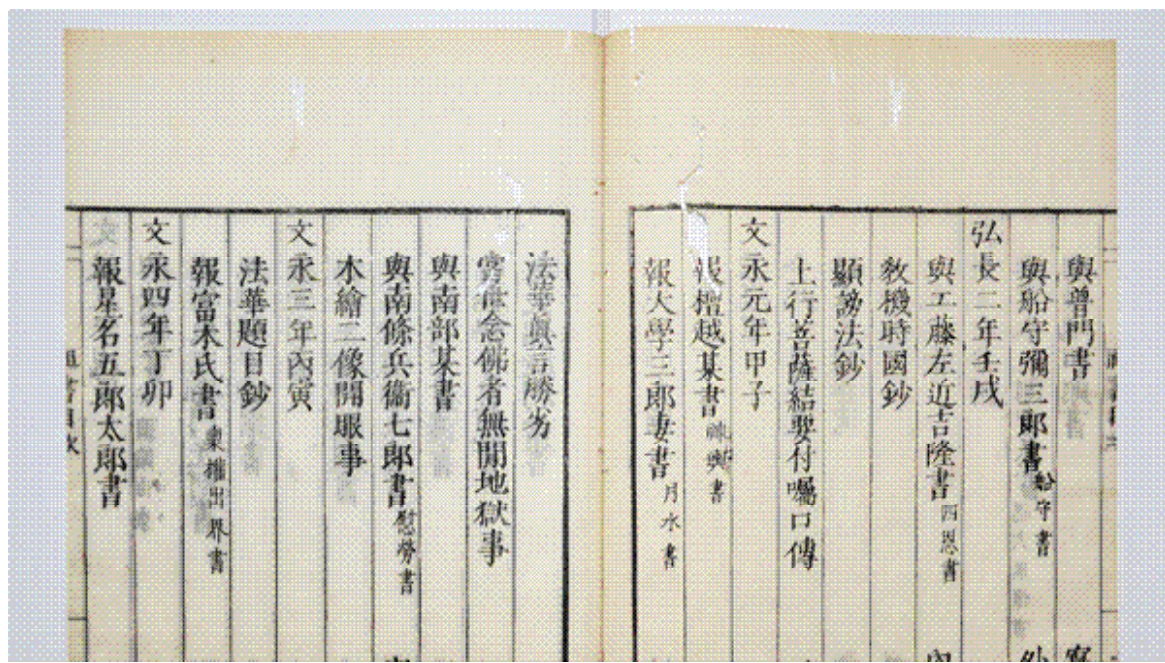 與普門書
與船守彌三郎書 船守書
弘長二年壬戌
與工藤左近吉隆書 四恩書
敎機時國鈔
顯謗法鈔
上行菩薩結要付囑口傳
文永元年甲子
報檀越某書
報大學三郎妻書 月水書
法華眞言勝劣
當世念佛者無間地獄事
與南部某書
與南條兵衞七郎書 慰勞書
木繪二像開眼事
文永三年丙寅
法華題目鈔
報富木氏書
文永四年丁卯
報星名五郎太郎書